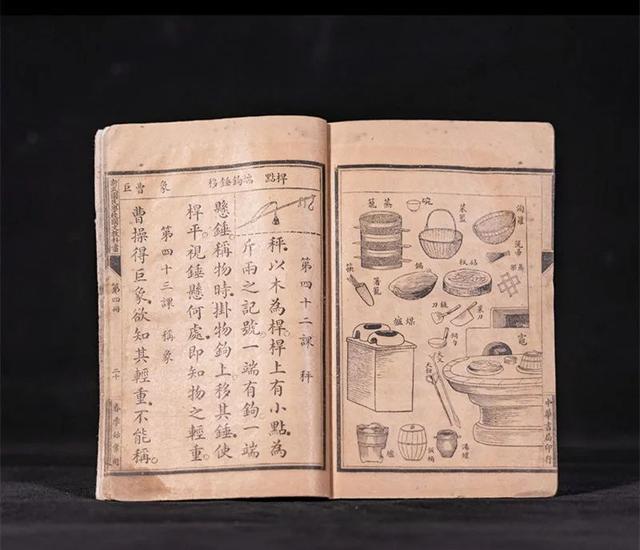 菜籃
碗
蒸籠
砧板
鍋
菜刀
煤爐
竈
火叉
湯罐
飯桶
爐
中華書局印行
桿點 端鉤錘移
象 曹 巨
第四十二課 秤
秤以木為桿。桿上有小點為
斤兩之記號。一端有鉤。一端
懸錘。稱物時。掛物鉤上。移其錘使
桿平。視錘懸何處。即知物之輕重。
第四十三課 稱象
曹操得巨象。欲知其輕重。不能稱。
第四冊
二十
春季始業用